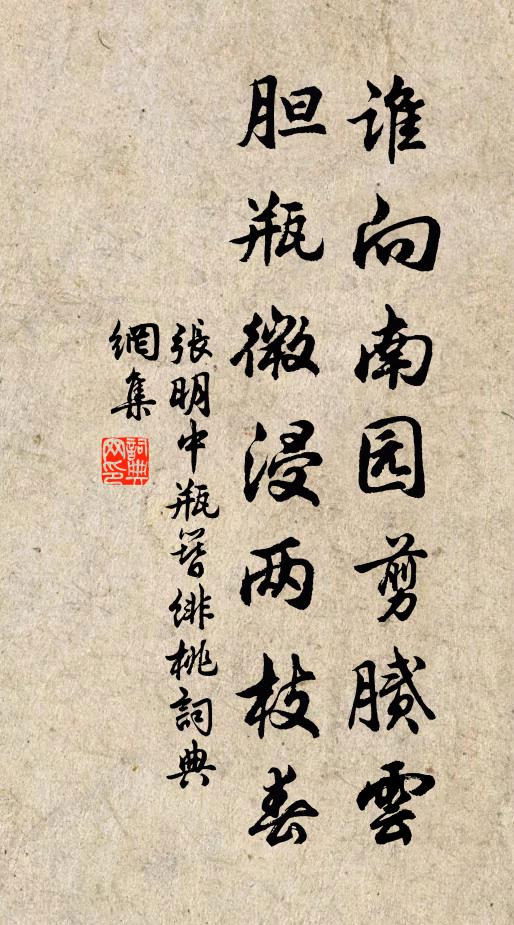 谁向南园剪賸雲
胆瓶微浸两枝春
張明中瓶簪緋桃詞典
網集
詞典
网印